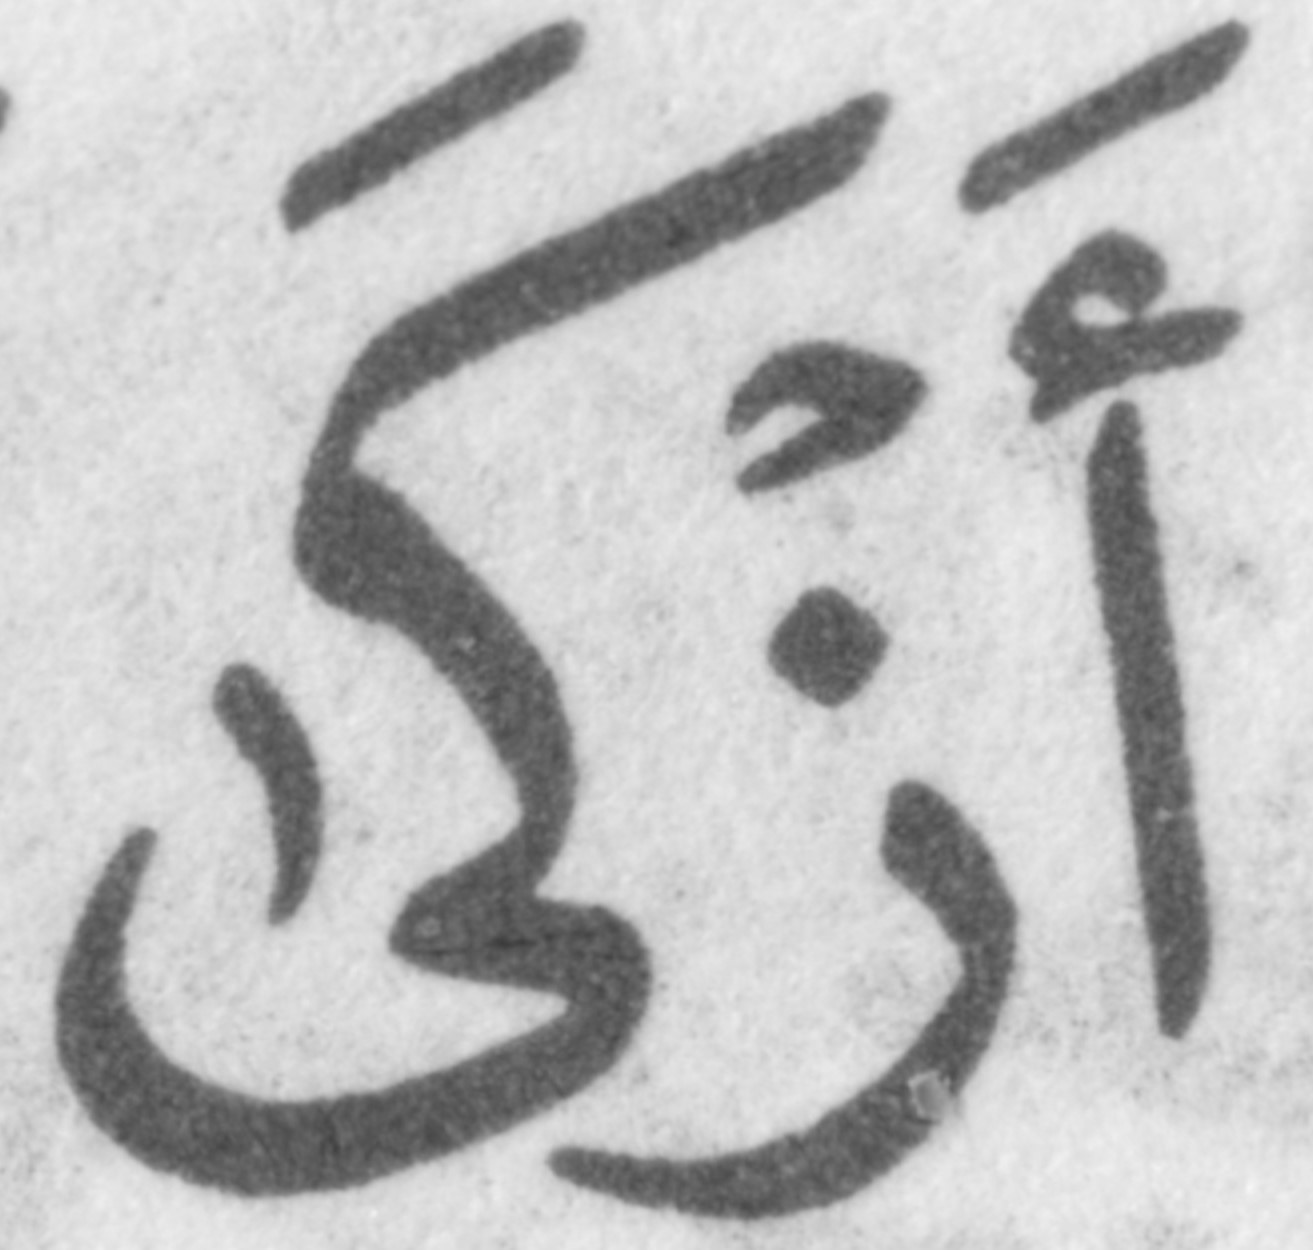 أَزْكَىٰ